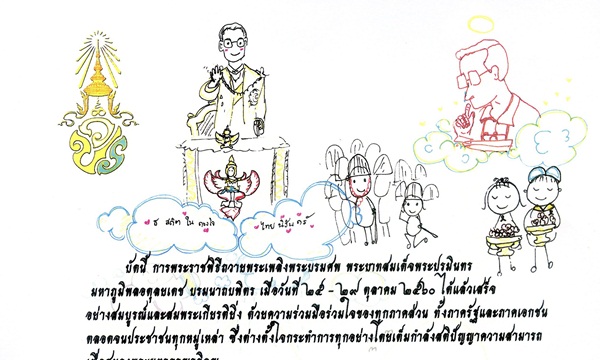 ธ สถิต ใน ดวงใจ
ไทย นิรันดร์
บัดนี้ การพระราชพิธีถวายพระเพลิงพระบรมศพ พระบาทสมเด็จพระปรมินทร
มหาภูมิพลอดุลยเดช บรมนาถบพิตร เมื่อวันที่ ๒๕ - ๒๙ ตุลาคม ๒๕๖๐ ได้แล้วเสร็จ
อย่างสมบูรณ์และสมพระเกียรติยิ่ง ด้วยความร่วมมือร่วมใจของทุกภาคส่วน ทั้งภาครัฐและภาคเอกชน
ตลอดจนประชาชนทุกหมู่เหล่า ซึ่งต่างตั้งใจกระทำการทุกอย่างโดยเต็มกำลังสติปัญญาความสามารถ